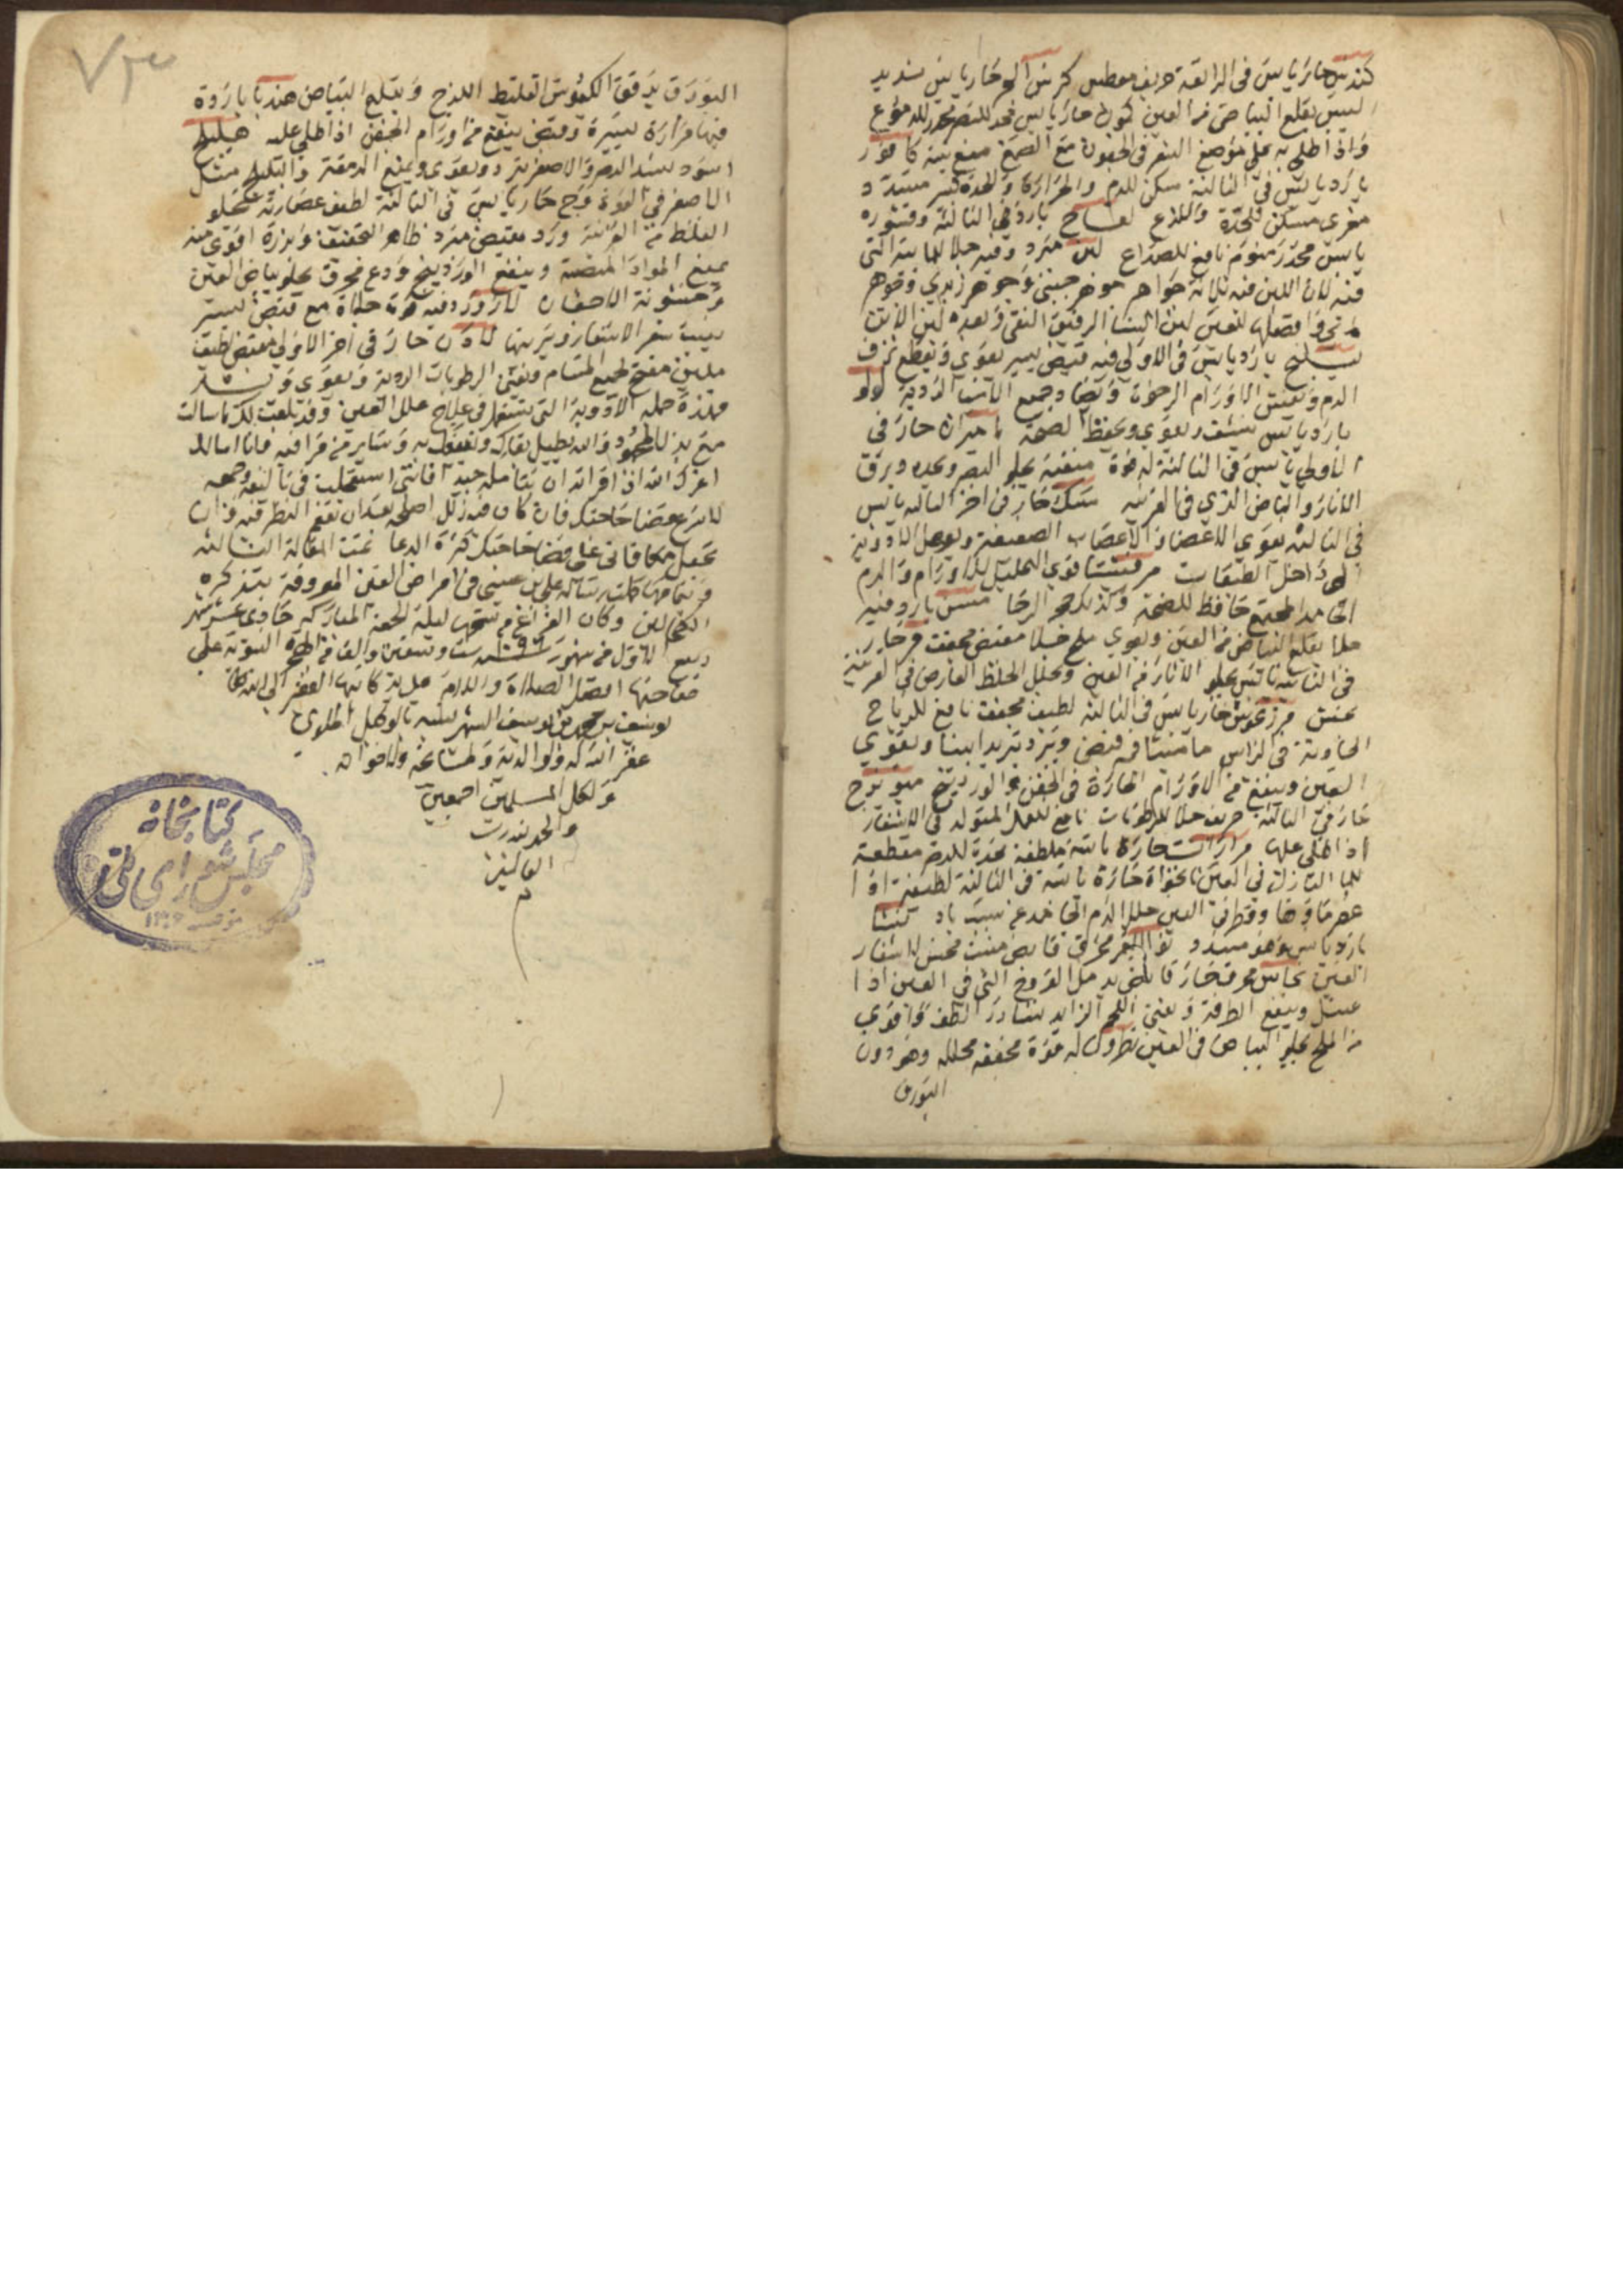 كندس حار يابس في الرابعة حريف معطس كرسنه حار يابس شديد
اليبس يقلع البياض من العين كمون حار يابس محد للبصر
واذا طلي به على موضع الشعر في الجفون مع الصمغ منع نبته كافور
بارد يابس في الثالثة مسكن للدم والحرارة والحدة
مغري مسكن للحدة واللذع لفاح بارد في الثالثة وقشوره
يابس مخدر منوم نافع للصداع لبن مبرد وفيه جلا للمائية التي
فيه لان اللبن فيه ثلاثة جواهر جوهر جبني وجوهر زبدي وجوهر
مائي وافضلها للعين لبن النسا الرقيق النقي وبعده لبن الاتن
بارد يابس في الاولى فيه قبض يسير يقوي ويقطع نزف
الدم الاورام الرخوة وجميع لولو
بارد يابس ينشف ويقوي ويحفظ الصحة ماميران حار في
الاولى يابس في الثالثة له قوة منقية يجلو البصر ويحده ويرق
الاثار والبياض الذي في القرنية مسك حار في اخر الثالثة يابس
في الثالثة يقوي الاعضا والاعصاب الضعيفة ويوصل الادوية
الى داخل الطبقات مرقشيثا قوي التحليل للاورام والدم
الجامد المجتمع حافظ للصحة وكذلك حجر الرحا مسن بارد وفيه
جلا يقلع البياض من العين ويقوي ملح جلا مقبض مجفف مر حار
في الثانية يابس يجلو الاثار من العين ويحلل الخلط العارض في القرنية
مرزنجوش حار يابس في الثالثة لطيف مجفف نافع للرياح
الحادثة في الراس ماميثا فيه قبض ويبرد تبريدا بينا ويقوي
العين وينفع من الاورام الحارة في الجفن والوردينج ميويزج
حار في الثالثة حريف جلا للرطوبات نافع للقمل المتولد في الاشفار
اذا طلي عليها مرارات حارة يابسة ملطفة محدة للبصر مقطعة
للما النازل في العين نانخواه حارة يابسة في الثالثة لطيفة اذا
وقطر في العين حلل الدم نشا
بارد يابس وهو مسدد نوا التمر محرق قابض منبت محسن لاشفار
العين نحاس محرق حار قابض يدمل القروح التي في العين اذا
غسل وينفع الطرفة ويفني اللحم الزايد نشادر الطف واقوى
من الملح يجلو البياض من العين نطرون له قوة مجففة محللة وهو دون
البورق
البورق يدقق الكيموس الغليظ اللزج ويقلع البياض هندبا باردة
فيها مرارة يسيرة وقبض ينفع من اورام الجفن اذا طلي عليه هليلج
اسود يشد البصر والاصفر يبرد ويقوي ويمنع الدمعة والبليلج مثل
الاصفر في القوة وج حار يابس في الثالثة لطيف عصارته تجلو
الغلظ من القرنية ورد مقبض مبرد ظاهر التجفيف وبزره اقوى منه
يمنع المواد المنصبة وينفع الوردينج ودع محرق يجلو بياض العين
وخشونة الاجفان لازورد فيه قوة جلاة مع قبض يسير
ينبت شعر الاشفار ويزينها لاذن حار في اخر الاولى مقبض لطيف
ملين مفتح لجميع المسام ويفني الرطوبات الردية ويقوي
فهذه جملة الادوية التي تستعمل في علاج علل العين وقد بلغت لك ما سالت
مع بذل المجهود والله يطيل بقاك وينفعك به وساير من قرا فيه فانا اسالك
اعزك الله اذا قراته ان تتامله جيدا فانني استعجلت في تاليفه وجمعه
لاسرع بقضا حاجتك فان كان فيه زلل اصلحه بعد ان تنعم النظر فيه وان
تجعل مكافاتي على قضا حاجتك كثرة الدعا تمت المقالة الثالثة
وبتمامها كملت رسالة علي بن عيسى في امراض العين المعروفة بتذكرة
الكحالين وكان الفراغ من نسخها ليلة الجمعة المباركة حادي عشر شهر
ربيع الاول من شهور سنة ١٠٩٦ ست وتسعين والف من الهجرة النبوية على
صاحبها افضل الصلاة والسلام على يد كاتبها الفقير الى الله تعالى
يوسف بن محمد بن يوسف الشهير نسبه بالوكيل الملوي
غفر الله له ولوالديه ولمشايخه ولاخوانه
ولكل المسلمين اجمعين
والحمد لله رب
العالمين
م
كتابخانه
مجلس شورای ملی